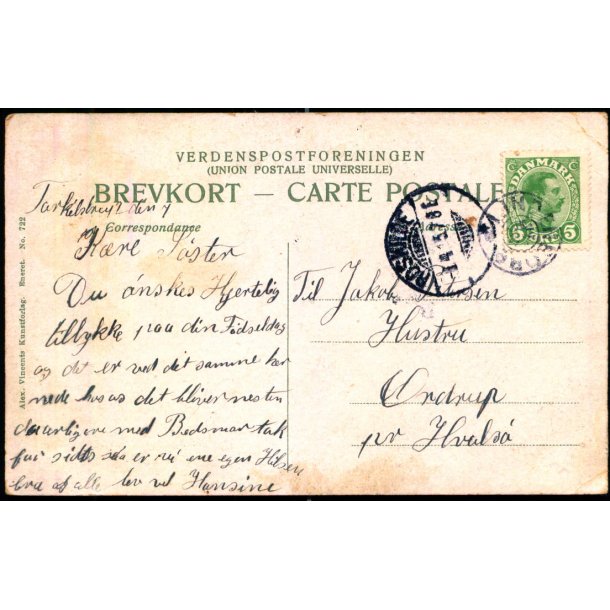 VERDENSPOSTFORENINGEN
(UNION POSTALE UNIVERSELLE)
BREVKORT — CARTE POSTALE
DANMARK
5 5
den 7
Correspondance
Kære Søster
Du ønskes Hjertelig
tillykke paa din Fødseldag
og det er ved det samme her
nede hos os det bliver nesten
daarligere med Bedsmor tak
for sidst saa er vi ene egen Hilsen
fra os alle lev vel Hansine
Til Jakob
Hustru
Ordrup
pr Hvalsø
Alex. Vincents Kunstforlag. Eneret. No. 722